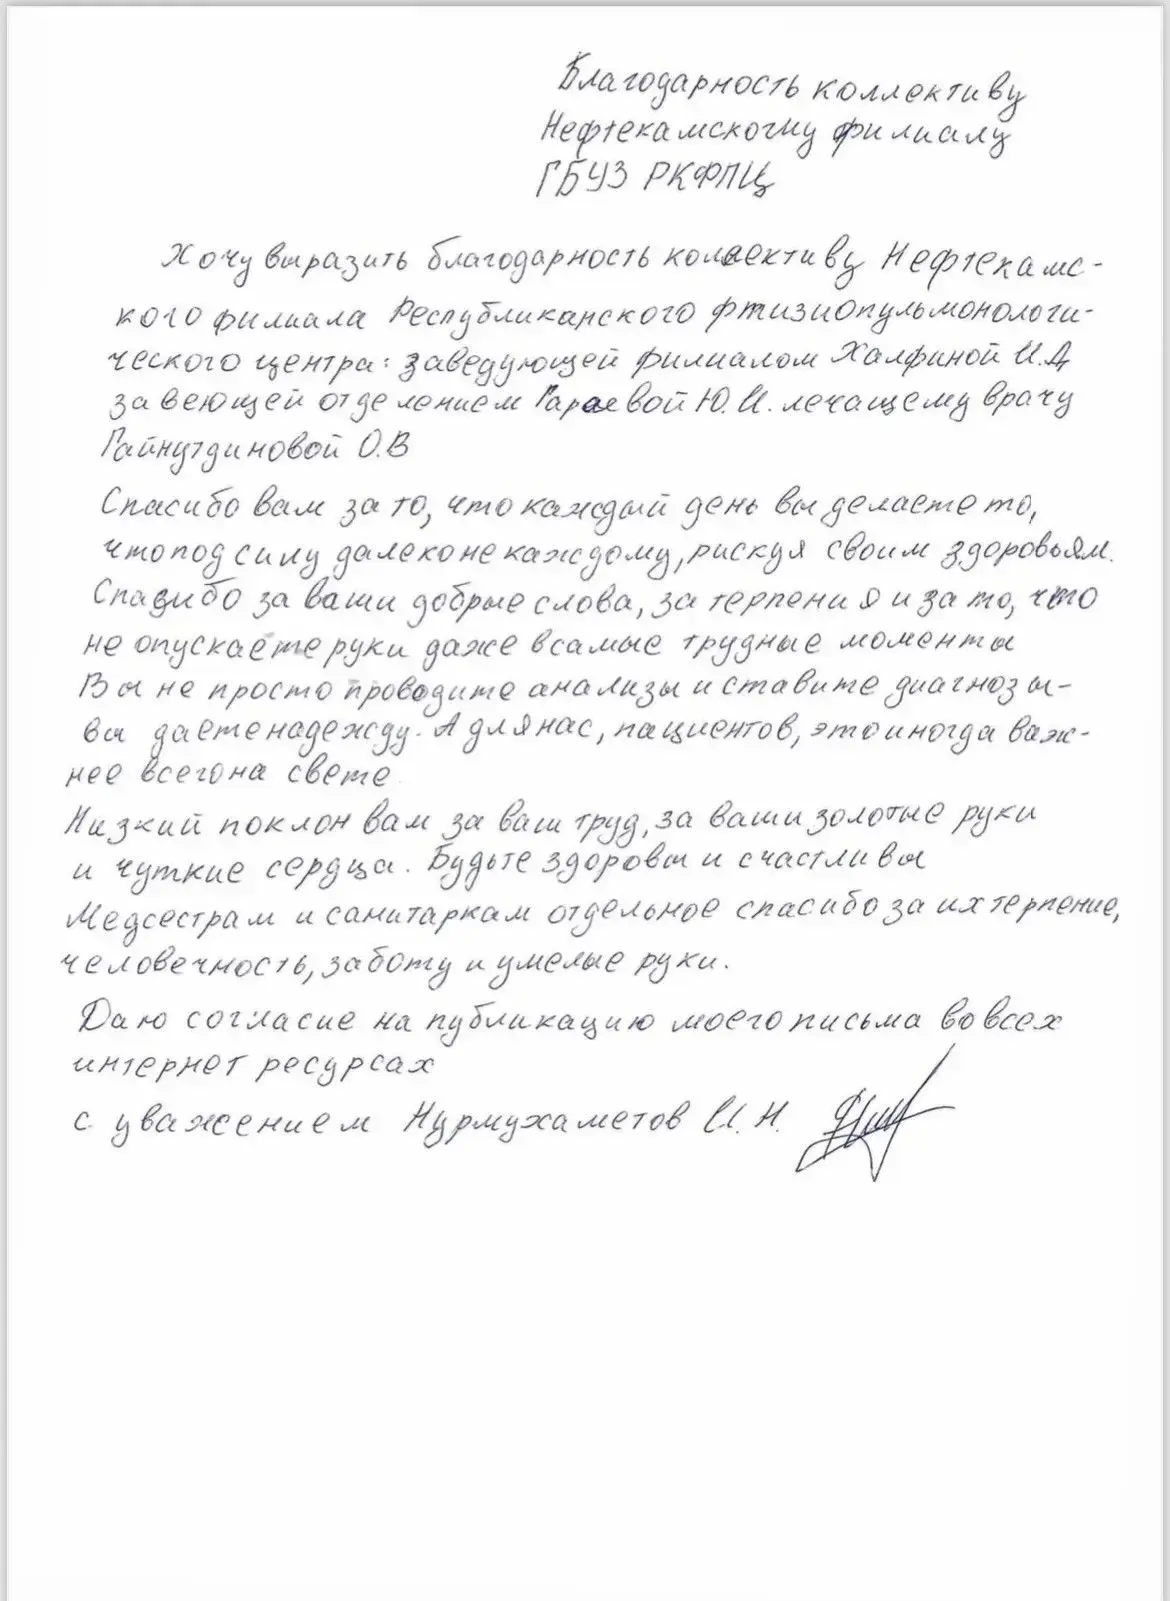 Благодарность коллективу
Нефтекамскогму филиалу
ГБУЗ РКФПЦ
Хочу выразить благодарность коллективу Нефтекамс-
кого филиала Республиканского фтизиопульмонологи-
ческого центра: заведующей филиалом Халфиной И.Д
завеющей отделением Гараевой Ю.И. лечащему врачу
Гайнутдиновой О.В
Спасибо вам за то, что каждый день вы делаете то,
что под силу далеко не каждому, рискуя своим здоровьям.
Спасибо за ваши добрые слова, за терпения и за то, что
не опускаете руки даже в самые трудные моменты
Вы не просто проводите анализы и ставите диагнозы-
вы даете надежду. А для нас, пациентов, это иногда важ-
нее всего на свете
Низкий поклон вам за ваш труд, за ваши золотые руки
и чуткие сердца. Будьте здоровы и счастливы
Медсестрам и санитаркам отдельное спасибо за их терпение,
человечность, заботу и умелые руки.
Даю согласие на публикацию моего письма во всех
интернет ресурсах
с уважением Нурмухаметов И.Н.